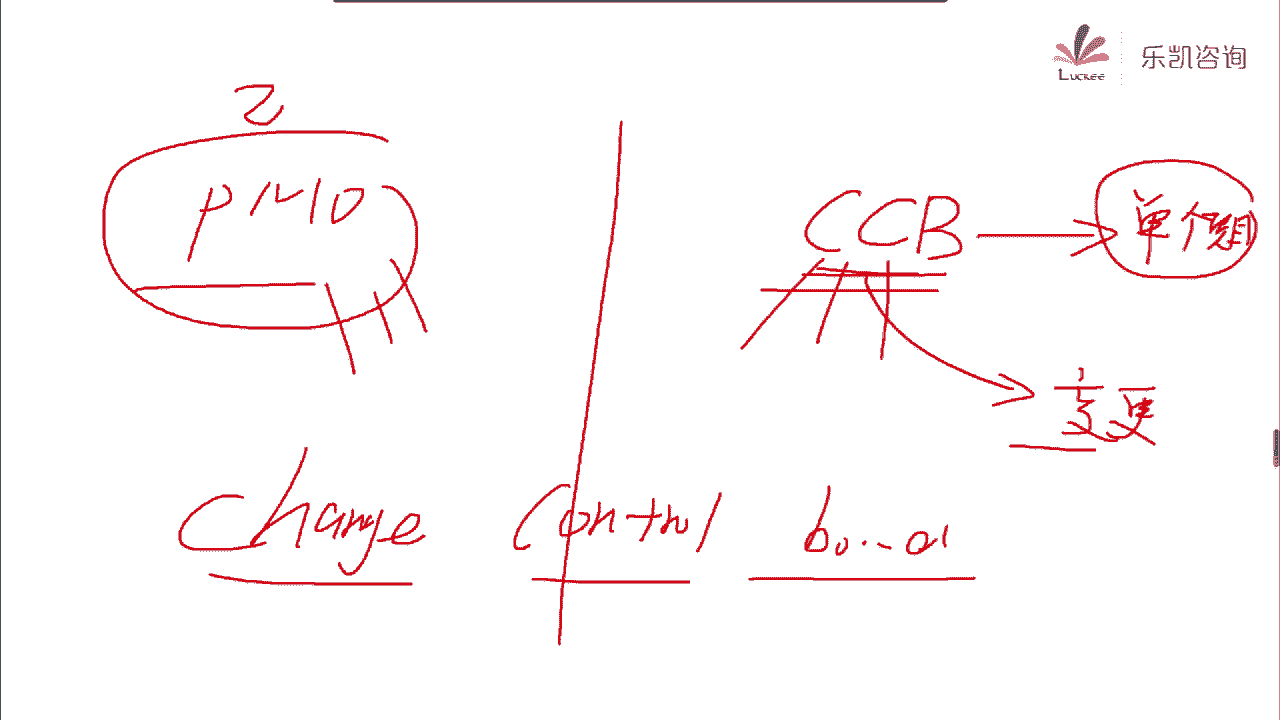 LUCKEE 乐凯咨询
2
PMO
CCB 单个项目
变更
Change Control